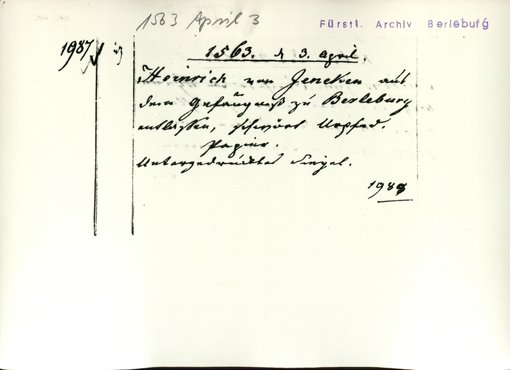 1563 April 3
Fürstl. Archiv Berleburg
1987
1563. d 3. April.
Heinrich von Jeneken aus
dem Gefängniß zu Berleburg
entlassen, schwört Urpfed.
Papier.
Untergedrücktes Siegel.
198